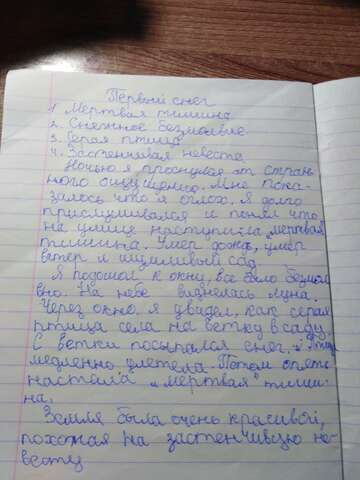 Первый снег
1. Мертвая тишина
2. Снежное безмолвие
3. Серая птица
4. Застенчивая невеста
Ночью я проснулся от стран
ного ощущения. Мне пока-
залось что я оглох. Я долго
прислушивался и понял что
на улице наступила "мертвая
тишина. Умер дождь, умер
ветер и шумливый сад.
Я подошол к окну, все было безмол
вно. На небе виднелась луна.
Через окно, я увидел, как серая
птица села на ветку в саду.
С ветки посыпался снег. Птица
медленно улетела. Потом опять
настала "мертвая" тиши-
на.
Земля была очень красивой,
похожая на застенчивую не-
весту